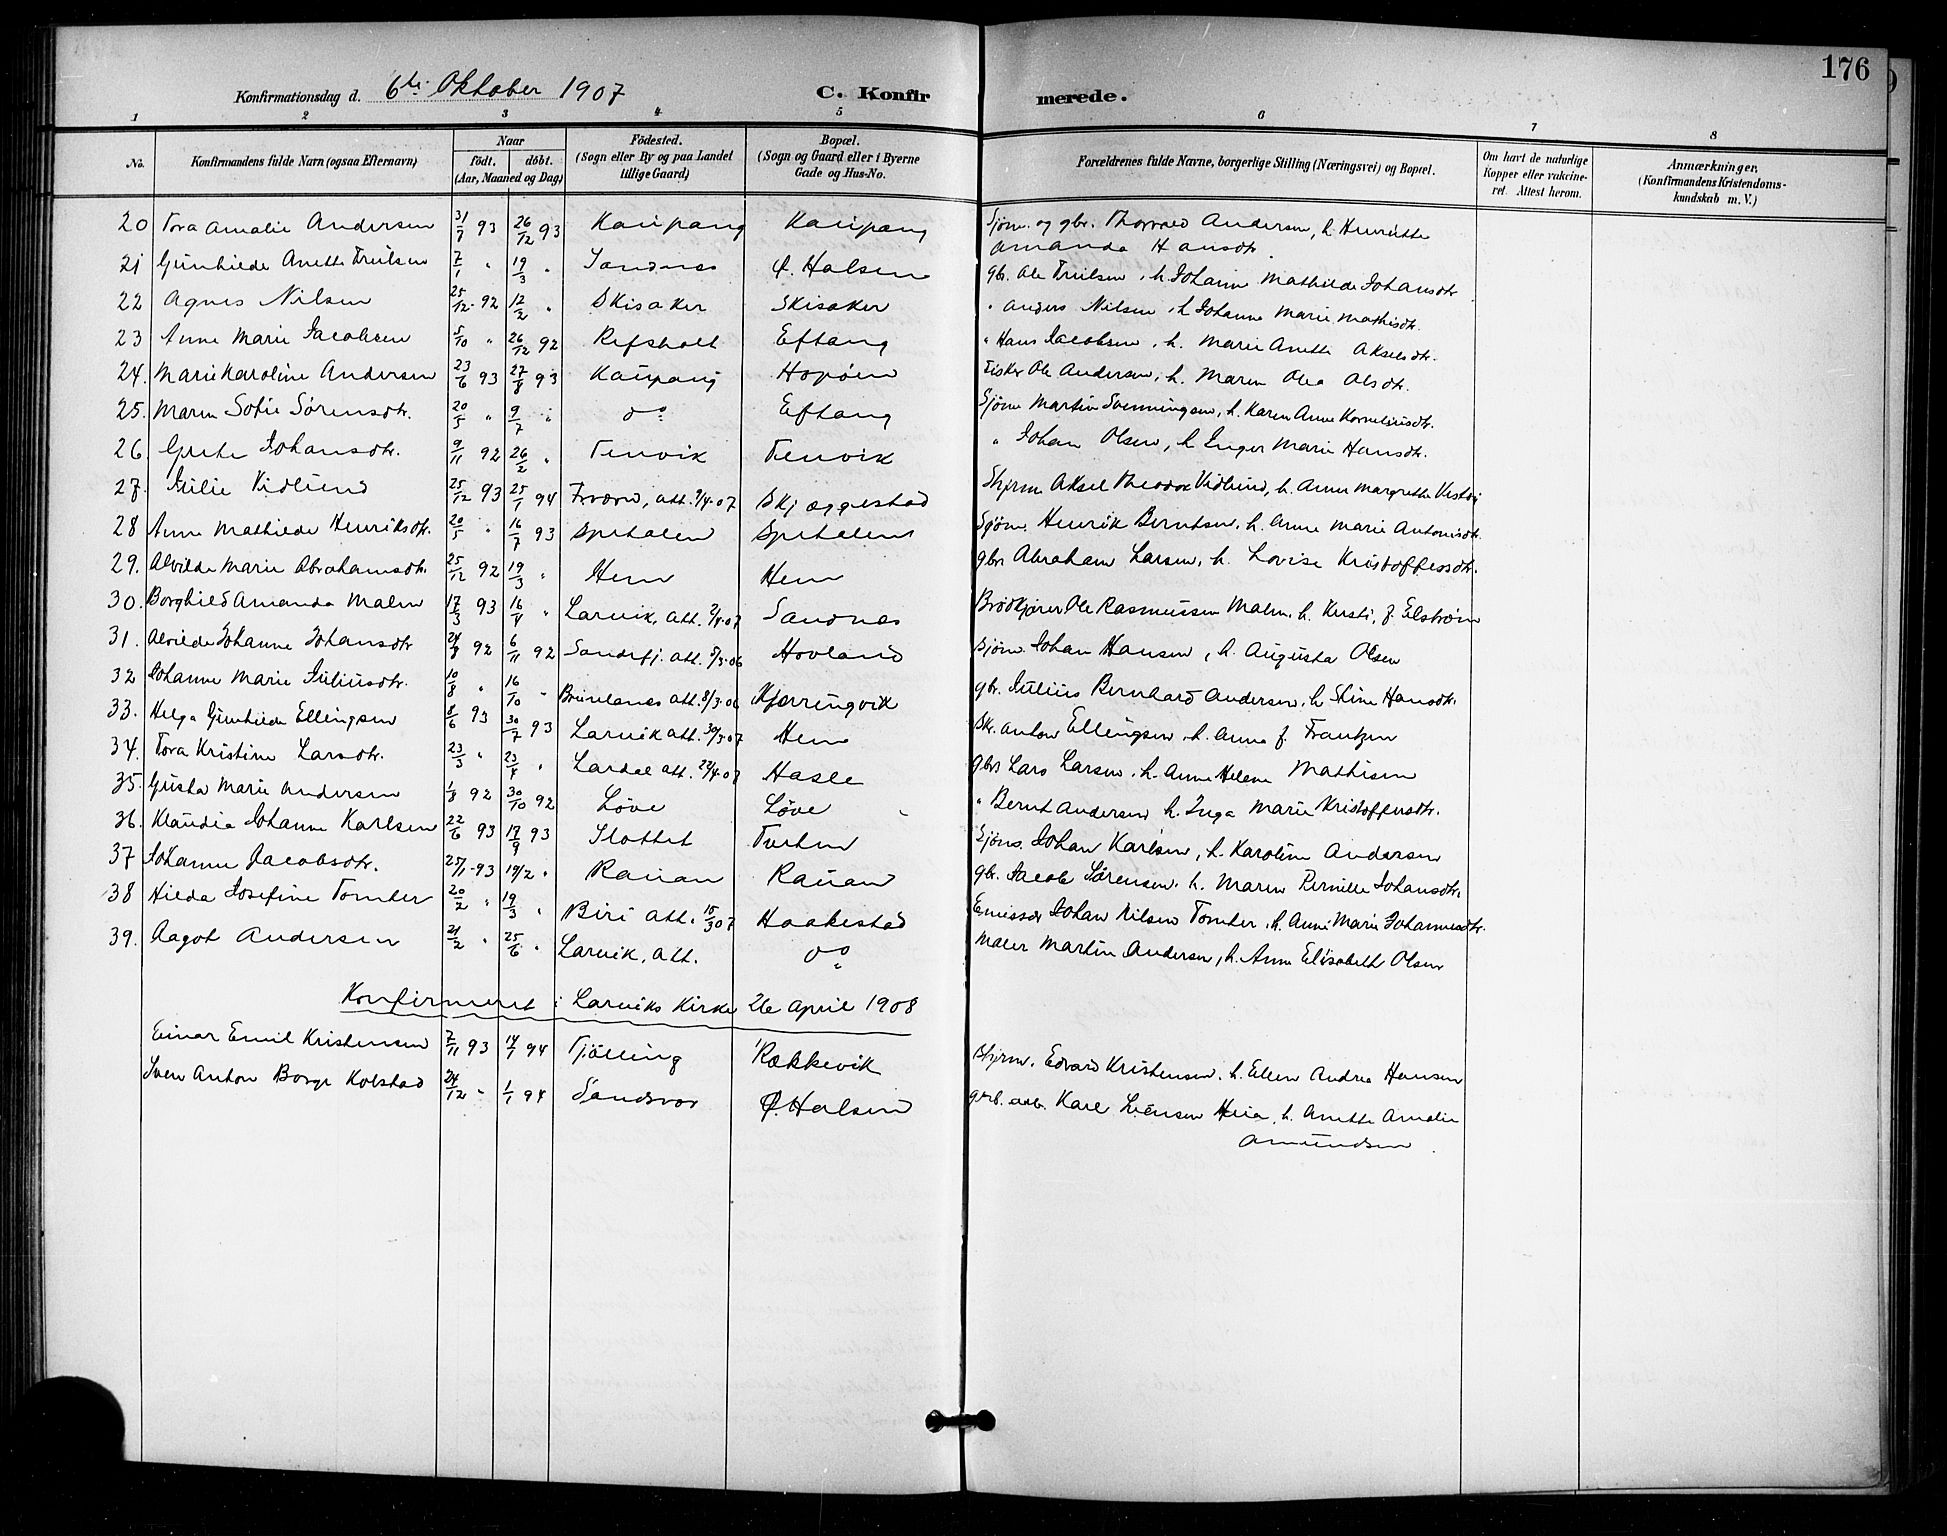 176
Konfirmationsdag d. 6te Oktober 1907 C. Konfirmerede.
1 2 3 4 5 6 7 8
No. Konfirmandens fulde Navn (ogsaa Efternavn) Naar födt. döbt. (Aar, Maaned og Dag) Födested. (Sogn eller By og paa Landet tillige Gaard) Bopæl. (Sogn og Gaard eller i Byerne Gade og Hus-No. Forældrenes fulde Navne, borgerlige Stilling (Næringsvei) og Bopæl. Om havt de naturlige Kopper eller vakcineret. Attest herom. Anmærkninger. (Konfirmandens Kristendomskundskab m. V.)
20 Tora Amalie Andersen 31/7 93 26/12 93 Kaupang Kaupang Sjöm. og gbr. Thorvald Andersen, h. Henriette
Amanda Hansdtr.
21 Gunhilde Anette Truilsen 7/1 " 19/3 " Sandnes Ö. Halsen gbr. Ole Truilsen, h. Johanne Mathilde Johansdtr
22 Agnes Nilsen 25/12 92 12/2 " Skisaker Skisaker " Anders Nilsen, h. Johanne Marie Mathisdtr.
23 Anne Marie Jacobsen 5/10 " 26/12 92 Refsholt Eftang " Hans Jacobsen, h. Marie Anette Akselsdtr.
24. Marie Karoline Andersen 23/6 93 27/8 93 Kaupang Hopöen Fisker Ole Andersen, h. Maren Olea Olsdtr.
25. Maren Sofie Sörensdtr. 20/5 " 9/7 " do Eftang Sjöm Martin Svenningsen, h. Karen Anne Korneliusdtr.
26 Grete Johansdtr. 9/11 92 26/2 " Tenvik Tenvik " Johan Olsen, h. Inger Marie Hansdtr.
27. Julie Vidlund 25/12 93 25/1 94 att. 9/4.07 Skjæggestad Styrm Aksel Theodor Vidlund, h. Anne Margrethe
28 Anne Mathilde Henriksdtr. 20/5 " 16/7 93 Spetalen Spetalen Sjöm. Henrik Berntsen, h. Anne Marie Antonisdtr.
29. Alvilde Marie Abrahamsdtr. 25/12 92 19/3 " Hem Hem gbr. Abraham Larsen, h. Lovise Kristoffersdtr.
30. Borghild Amanda Malm 17/3 93 16/4 " Larvik, att. 2/4.07 Sandnes Ole Rasmussen Malm, h. Kersti, f. Elström
31. Alvilde Johanne Johansdtr 24/8 92 6/11 92 Sandefj. att. 5/3.06 Hovland Sjöm. Johan Hansen, h. Augusta Olsen
32 Johanne Marie Juliusdtr. 10/8 " 16/10 " Brunlanes att. 8/3.06 Kjerringvik gbr. Julius Bernhard Andersen, h. Stine Hansdtr.
33. Helga Gunhilde Ellingsen 8/6 93 30/7 93 Larvik att. 30/3.07 Hem Anton Ellingsen, h. Anna f. Frantzen
34. Tora Kristine Larsdtr. 23/3 " 23/4 " Lardal att. 22/4.07 Hasle gbr. Lars Larsen, h. Anne Helene Mathisen
35. Gusta Marie Andersen 1/8 92 30/10 92 Löve Löve " Bernt Andersen, h. Inga Marie Kristoffersdtr.
36. Klaudia Johanne Karlsen 22/6 93 17/9 93 Slottet Tveten Sjöm. Johan Karlsen, h. Karoline Andersen
37 Johanne Jacobsdtr. 25/11-93 19/2 " Rauan Rauan gbr. Jacob Sörensen, h. Maren Pernille Johansdtr.
38 Hilda Josefine Tomter 20/2 " 19/3 " Biri att. 15/3 07 Haakestad Emissær Johan Nilsen Tomter, h. Anne Marie Johannesdtr.
39. Aagot Andersen 21/2 " 25/6 " Larvik, att. do Maler Martin Andersen, h. Anne Elisabeth Olsen
Konfirmeret i Larviks Kirke 26 April 1908
Einar Emil Kristensen 7/11 93 14/1 94 Tjölling Rækkevik Styrm. Edvard Kristensen, h. Ellen Andrea Hansen
Sven Anton Borge Kolstad 24/12 " 1/1 94 Sandsvær Ö. Halsen Karl Heia, h. Anette Amalie
Amundsen